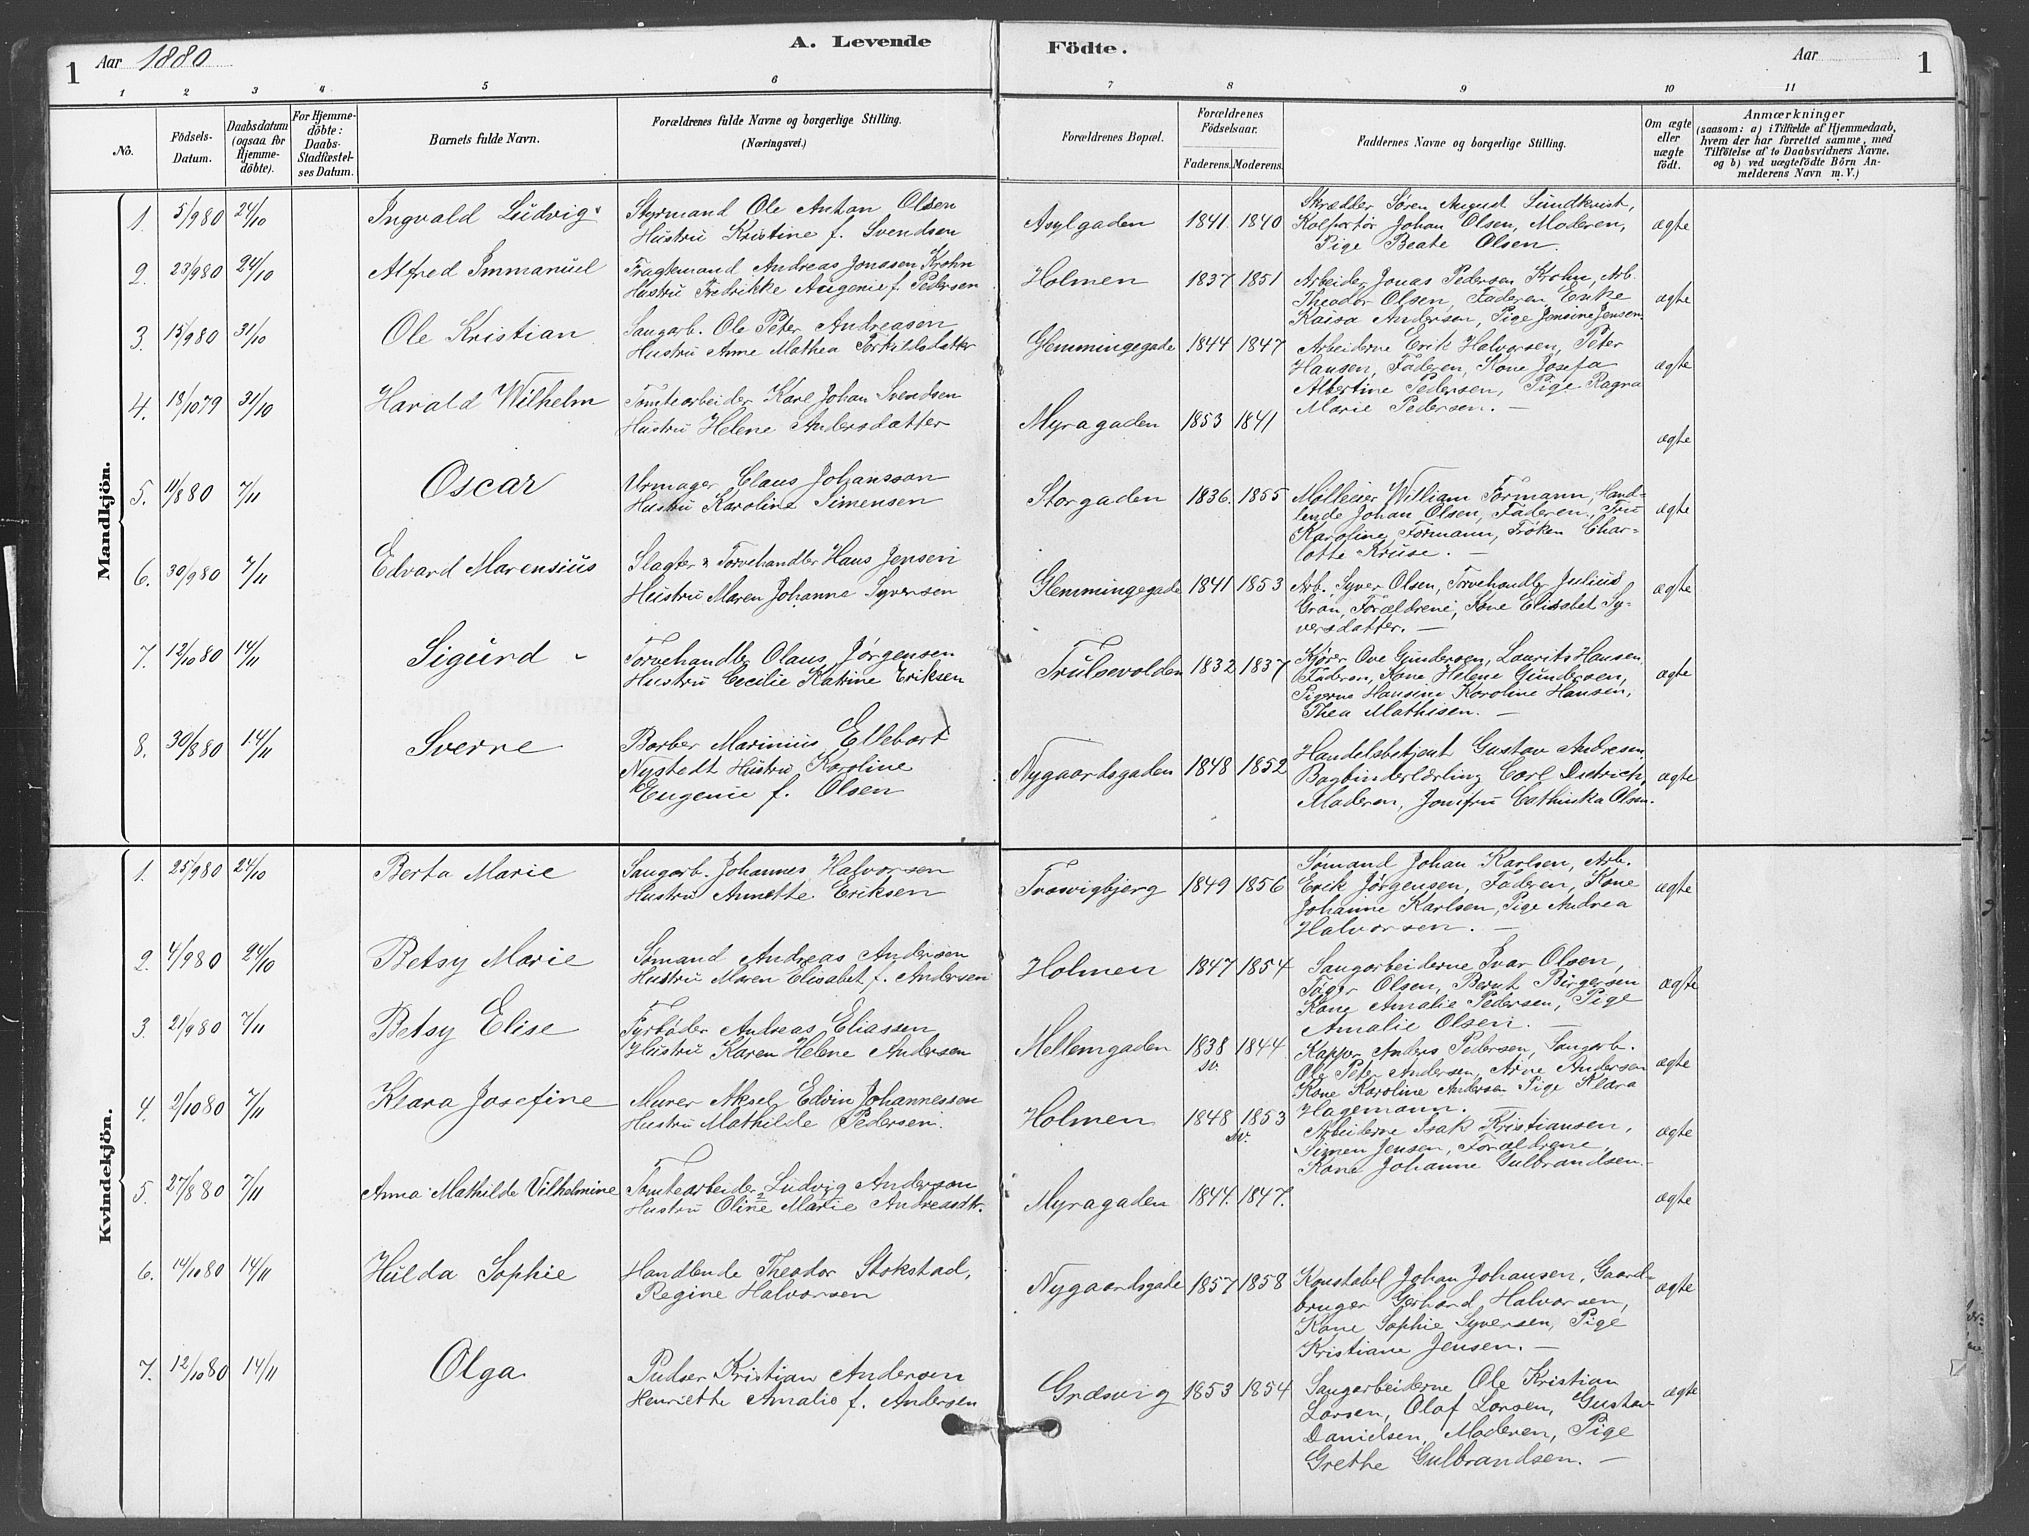 1 Aar 1880 A. Levende Födte. Aar 1
1 2 3 4 5 6 7 8 9 10 11
No. Födsels-Datum. Daabsdatum (ogsaa for Hjemme-döbte). For Hjemme-döbte: Daabs-Stadfæstel-ses Datum. Barnets fulde Navn. Forældrenes fulde Navne og borgerlige Stilling. (Næringsvei.) Forældrenes Bopæl. Forældrenes Födselsaar. Faderens. Moderens. Faddernes Navne og borgerlige Stilling. Om ægte eller uægte födt. Anmærkninger (saasom: a) i Tilfælde af Hjemmedaab, hvem der har forrettet samme, med Tilföielse af to Daabsvidners Navne, og b) ved uægtefödte Börn An-melderens Navn m.V.)
Mandkjön.
1. 5/9 80 24/10 Ingvald Ludvig Styrmand Ole Anton Olsen
Hustru Kristine f. Svendsen
Asylgaden 1841. 1840 Skrædder Søren August Lundkvist,
Kolportør Johan Olsen, Moderen,
Pige Beate Olsen. ægte
2. 23/9 80 24/10 Alfred Immanuel Fragtemand Andreas Jonasen Krohn
Hustru Fredrikke Augenie f. Pedersen
Holmen 1837 1851 Arbeider Jonas Pedersen Krohn, Arb.
Theodor Olsen, Faderen, Enke
Kaisa Andersen, Pige Jensine Jensen ægte
3. 15/9 80 31/10 Ole Kristian Saugarb. Ole Peter Andreasen
Hustru Anne Mathea Torkildsdatter
Glemmingegade 1844 1847 Arbeiderne Erik Halvorsen, Peter
Hansen, Faderen, Kone Josefa
Albertine Pedersen, Pige Ragna
Marie Pedersen. — ægte
4. 13/10 79 31/10 Harald Wilhelm Tomtearbeider Karl Johan Svendsen
Hustru Helene Andersdatter
Myragaden 1853 1841 ægte
5. 11/8 80 7/11 Oscar Urmager Claus Johansson
Hustru Karoline Simensen
Storgaden 1836. 1855 Møllerier William Formann, Hand-
lende Johan Olsen, Faderen, Fru
Karoline Formann, Frøken Char-
lotte Kruse. — ægte
6. 30/9 80 7/11 Edvard Marensius Slagter & Torvehandler Hans Jensen
Hustru Maren Johanne Syversen
Glemmingegade 1841 1853 Arb. Syver Olsen, Torvehandler Julius
Gran, Forældrene, Kone Elisabet Sy-
versdatter. — ægte
7. 12/10 80 14/11 Sigurd Torvehandler Olaus Jørgensen
Hustru Cecilie Katrine Eriksen
Trulsevolden 1832 1837 Kjører Ove Gundersen, Laurits Hansen
Faderen, Kone Helene Gundersen,
Pigerne Hansine Karoline Hansen,
Thea Mathisen. — ægte
8. 30/8 80 14/11 Sverre Barber Marinius Ellebart
Nystedt Hustru Karoline
Eugenie f. Olsen
Nygaardsgaden 1848 1852 Handelsbetjent Gustav Andresen
Bogbinderlærling Carl Dietrich,
Moderen, Jomfru Cathinka Olsen. ægte
Kvindekjön.
1. 25/9 80 24/10 Berta Marie Saugarb. Johannes Halvorsen
Hustru Annette Eriksen
Trosvigbjerg 1849 1856 Sømand Johan Karlsen, Arb.
Erik Jørgensen, Faderen, Kone
Johanne Karlsen, Pige Andrea
Halvorsen. — ægte
2. 4/9 80 24/10 Betsy Marie Sømand Andreas Andersen
Hustru Maren Elisabet f. Andersen
Holmen 1847 1854 Saugarbeiderne Ivar Olsen,
Olsen, Bernt Birgersen
Kone Amalie Pedersen, Pige
Amalie Olsen. — ægte
3. 21/9 80 7/11 Betsy Elise Fyrbøder Andreas Eliassen
Hustru Karen Helene Andersen
Mellemgaden 1838 sv. 1844 Kapper Anders Pedersen, Saugarb.
Ole Peter Andersen, Arne Andersen
Kone Karoline Andersen Pige Klara
Hagemann. ægte
4. 2/10 80 7/11 Klara Josefine Murer Aksel Edvin Johannessen
Hustru Mathilde Pedersen.
Holmen 1848 1853 sv. Arbeiderne Isak Kristiansen,
Simen Jensen, Forældrene,
Kone Johanne Gulbrandsen. — ægte
5. 27/8 80 7/11 Anna Mathilde Vilhelmine Tomtearbeider Ludvig Anderson
Hustru Oline Marie Andreasdtr.
Myragaden 1844. 1847. ægte
6. 14/10 80 14/11 Hulda Sophie Handlende Theodor Stokstad,
Regine Halvorsen
Nygaardsgade 1857 1858 Konstabel Johan Johansen, Gaard-
bruger Gerhard Halvorsen,
Kone Sophie Syversen, Pige
Kristiane Jensen. — ægte
7. 12/10 80 14/11 Olga Pudser Kristian Andersen
Henriette Amalie f. Andersen
Græsvig 1853 1854 Saugarbeiderne Ole Kristian
Larsen, Olaf Larsen, Gustav
Danielsen, Moderen, Pige
Grethe Gulbrandsen. — ægte